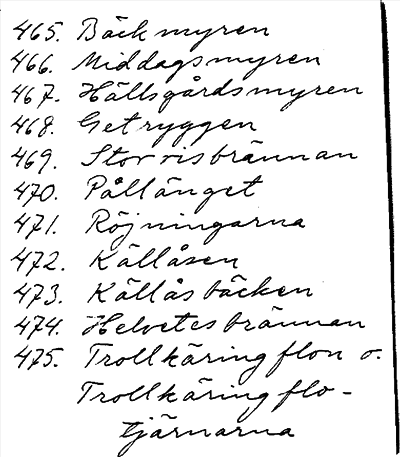 465. Bäckmyren
466. Middagsmyren
467. Hällsgårdsmyren
468. Getryggen
469. Storrisbrännan
470. Pållänget
471. Röjningarna
472. Källåsen
473. Källåsbäcken
474. Helvetesbrännan
475. Trollkäringflon o.
Trollkäringflo-
tjärnarna